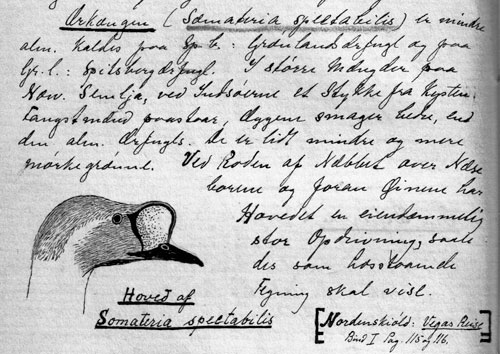 Ærkongen (Somateria spectabilis) er mindre
alm. kaldes paa Sp.b.: Grønlandsærfugl og paa
Gr.l.: Spitsbergærfugl. I større Mængder paa
Now. Semlja, ved Indsøerne et Stykke fra Kysten.
Fangstmænd paastaar, Æggene smager bedre, end
den alm. Ærfugls. De er lidt mindre og mere
mørkegrønne. Ved Roden af Næbbet over Næse
borene og foran Øinene har
Hovedet en eiendommelig
stor Opdrivning, saale
des som hosstaaende
Tegning skal vise.
Hoved af
Somateria spectabilis
[Nordenskiöld: Vegas Reise
Bind I Pag. 115 og 116.]